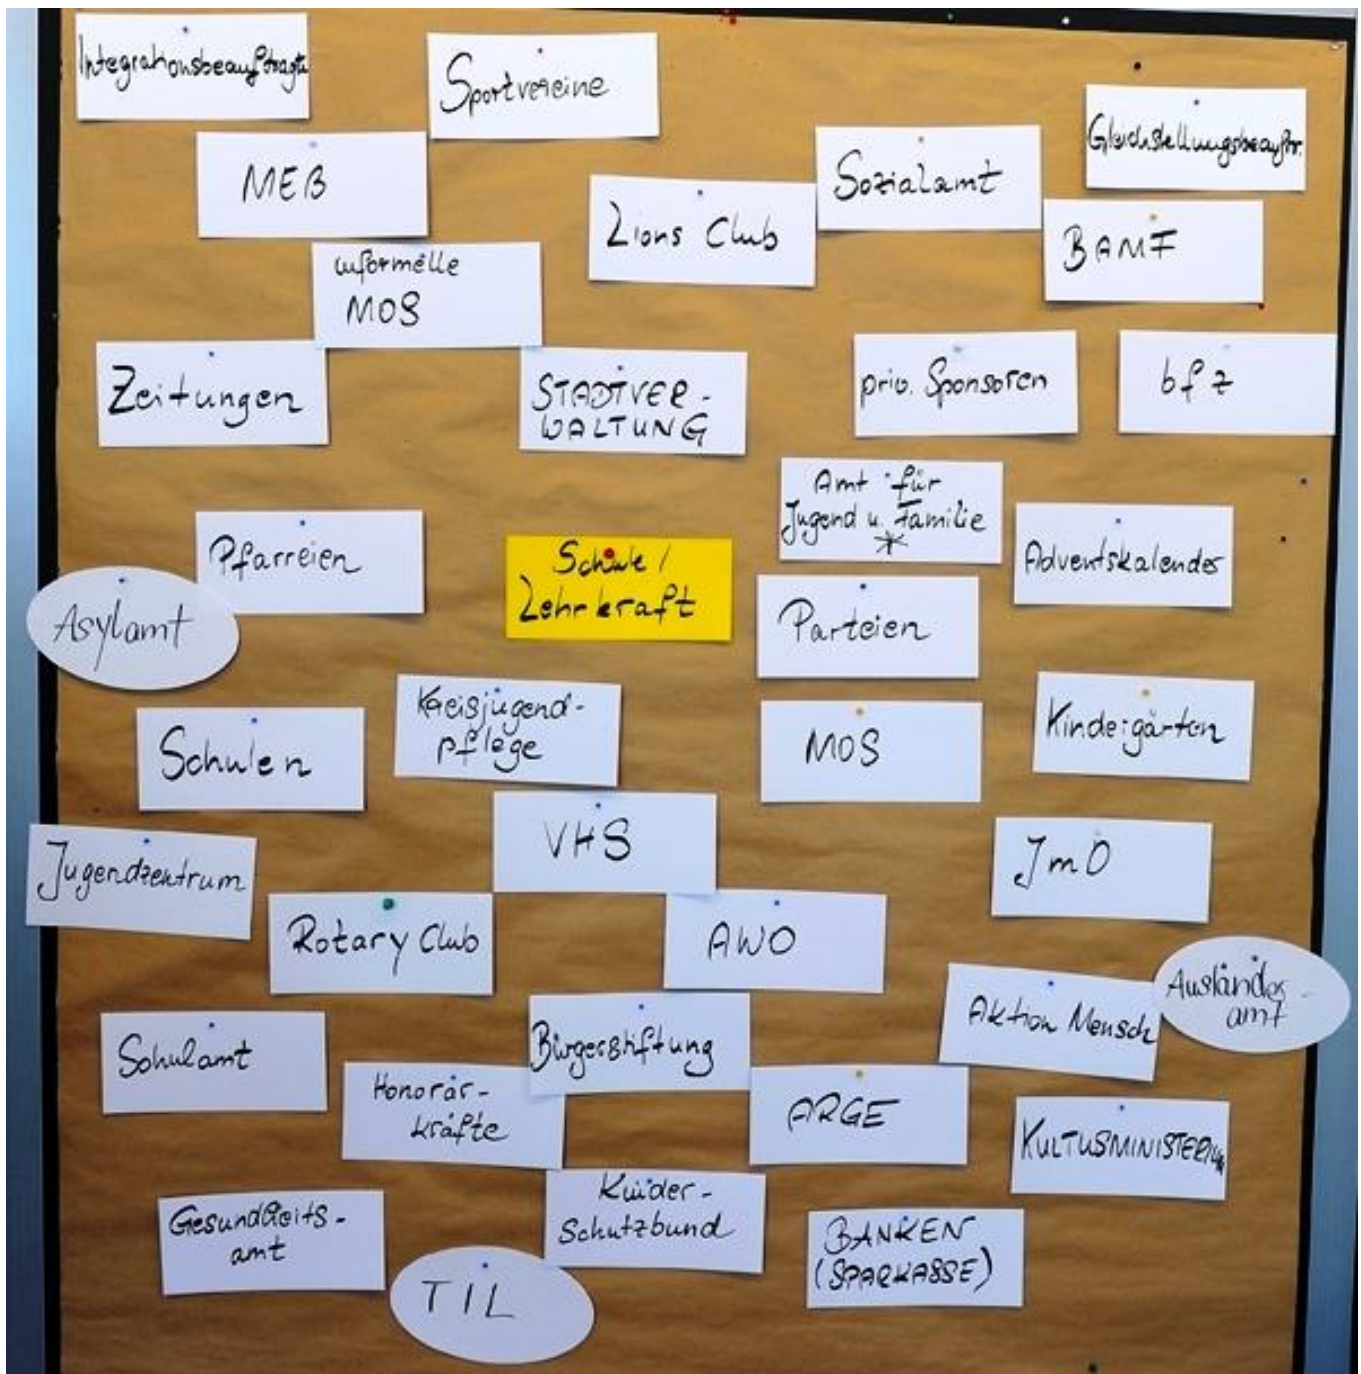 Integrationsbeauftragte
Sportvereine
Gleichstellungsbeauftr.
MEB
Sozialamt
Lions Club
BAMF
informelle
MOS
Zeitungen
STADTVER-
WALTUNG
priv. Sponsoren
bfz
Amt für
Jugend u. Familie
*
Pfarreien
Schule /
Lehrkraft
Adventskalender
Asylamt
Parteien
Kreisjugend-
pflege
Schulen
MOS
Kindergärten
VHS
JmD
Jugendzentrum
Rotary Club
AWO
Ausländer-
amt
Aktion Mensch
Schulamt
Bürgerstiftung
Honorar-
kräfte
ARGE
KULTUSMINISTERIUM
Gesundheits-
amt
Kinder-
Schutzbund
BANKEN
(SPARKASSE)
TIL